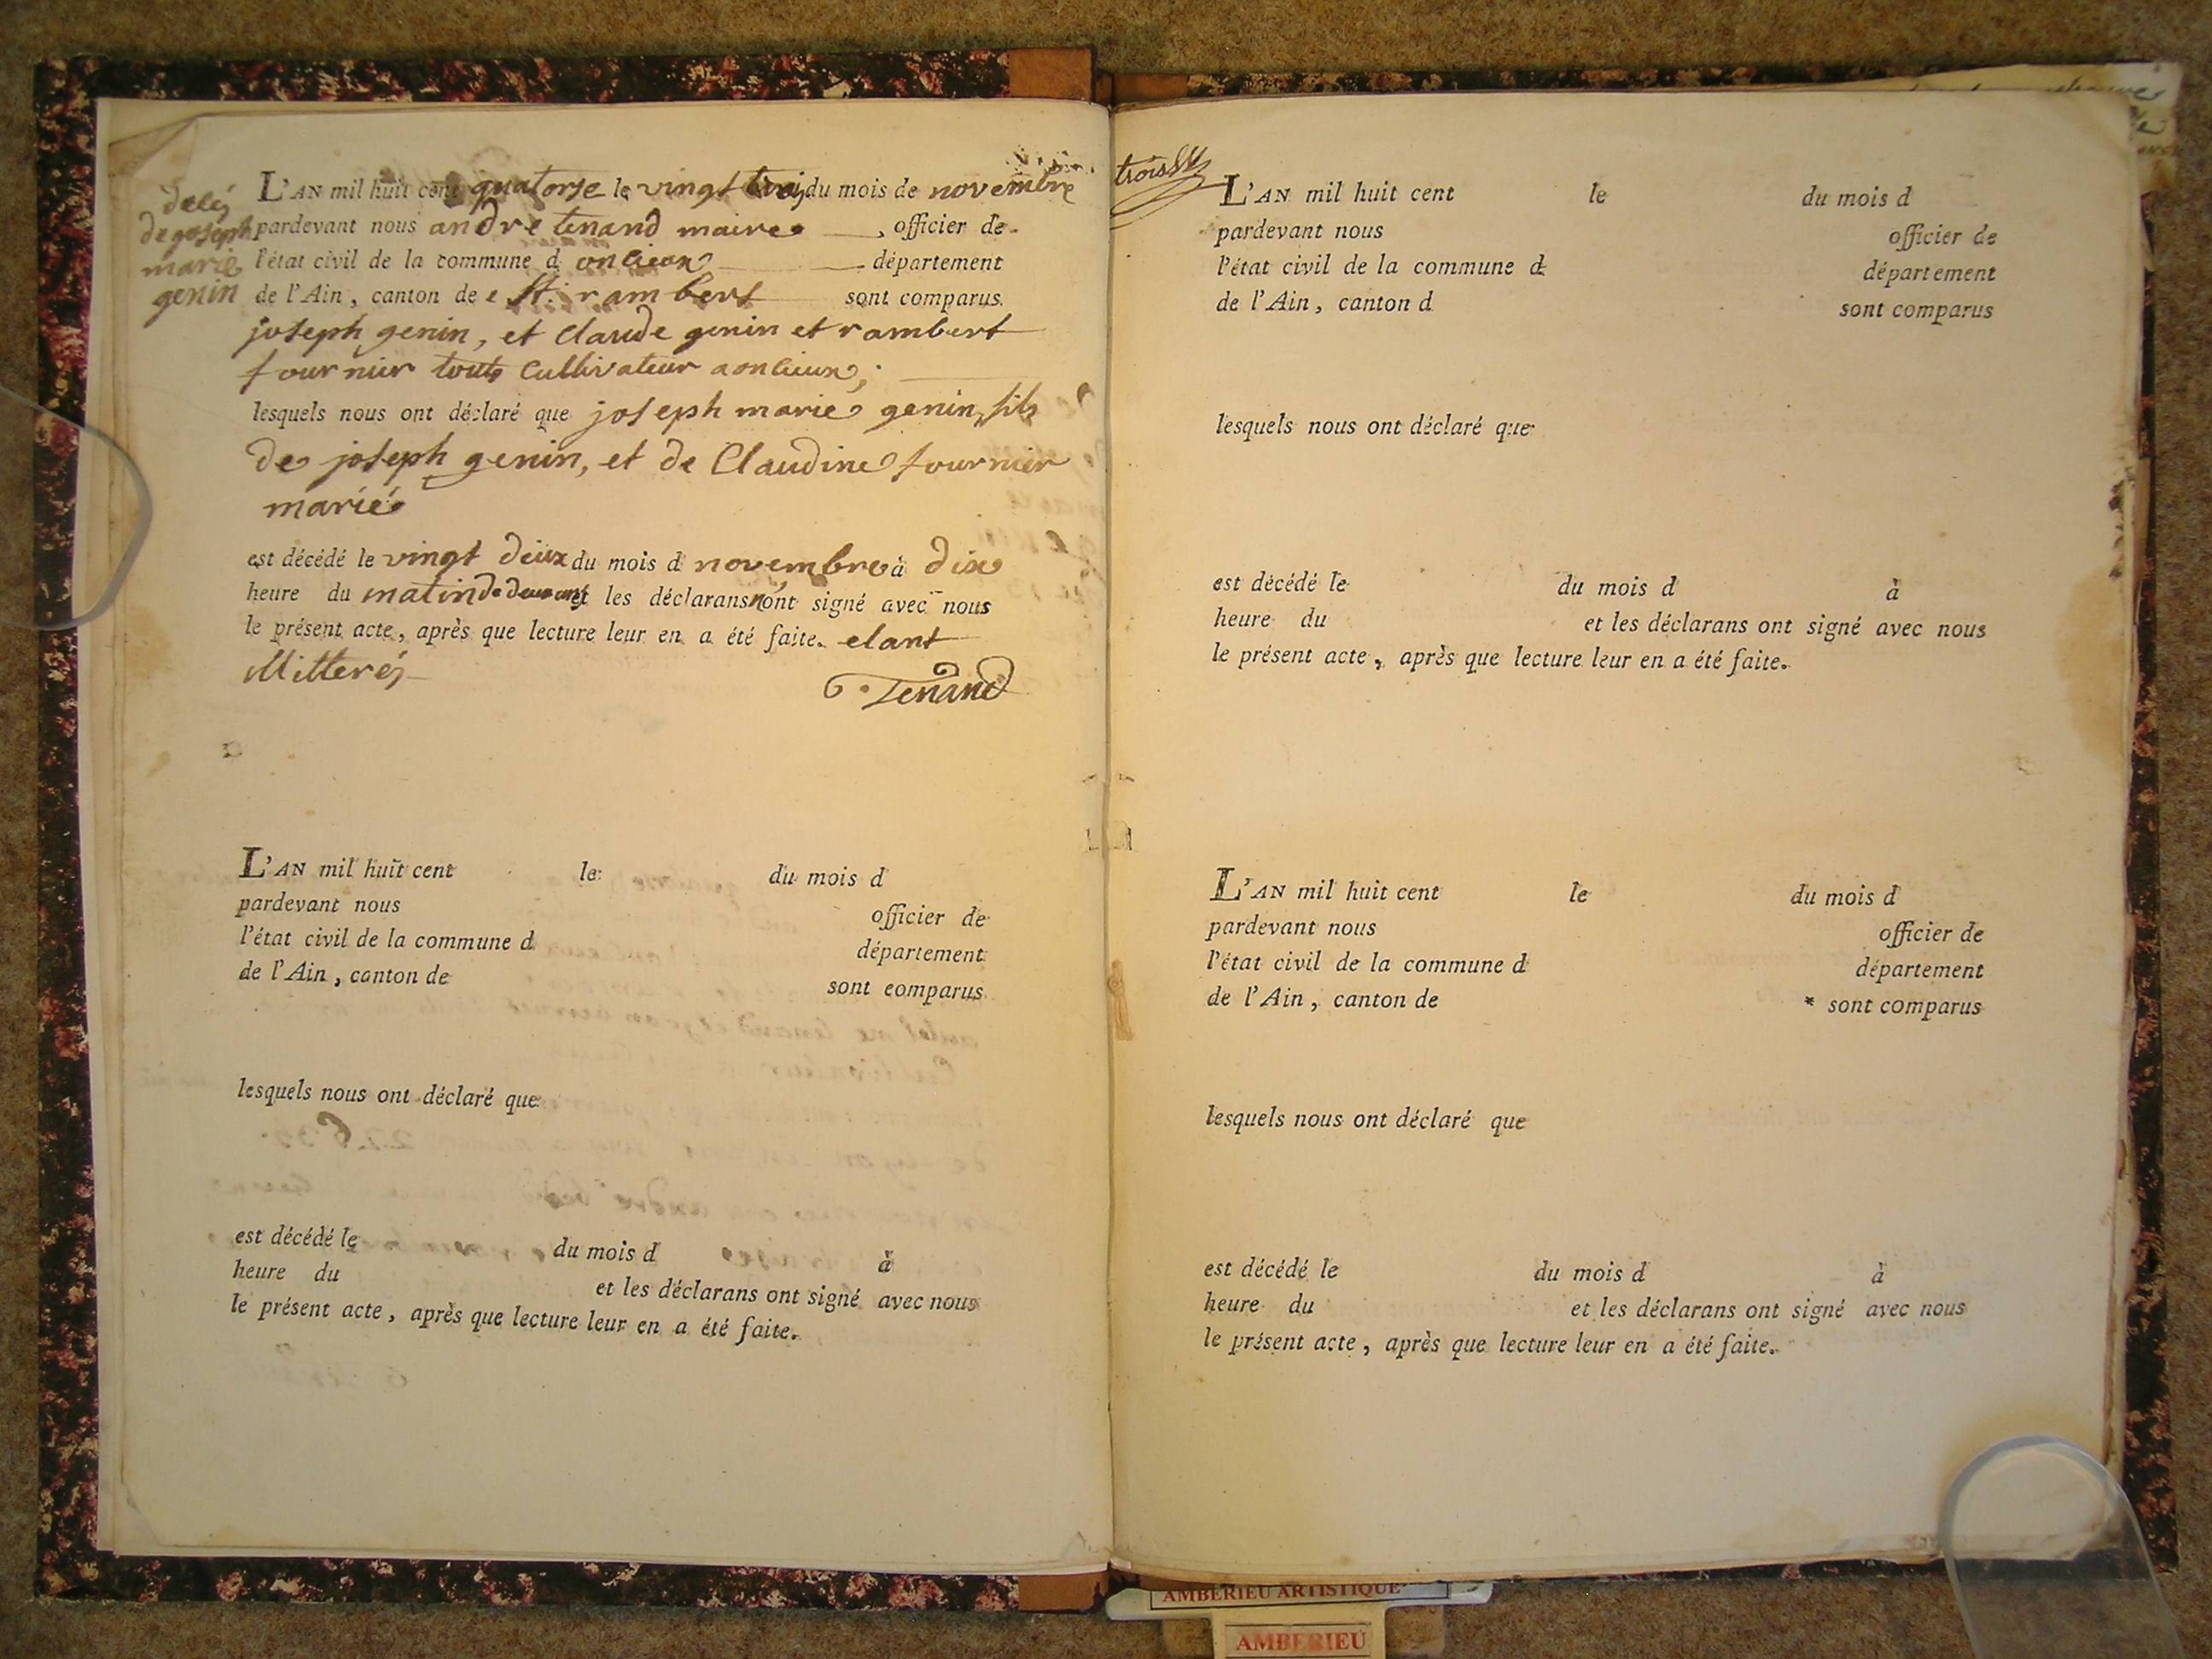 decés
de joseph
marie
genin
L'AN mil huit cent quatorse le vingt trois du mois de novembre
pardevant nous andre tenand maire , officier de
l'état civil de la commune d oncieux département
de l'Ain, canton de e St. rambert sont comparus
joseph genin, et Claude genin et rambert
fournier touts Cultivateur a oncieux,
lesquels nous ont déclaré que joseph marie genin, fils
de joseph genin, et de Claudine fournier
marié
est décédé le vingt deux du mois d novembre à dix
heure du matin et les déclarans n'ont signé avec nous
le présent acte, après que lecture leur en a été faite. etant
illitterés
Tenand
L'AN mil huit cent le du mois d
pardevant nous officier de
l'état civil de la commune d département
de l'Ain, canton de sont comparus
lesquels nous ont déclaré que
est décédé le du mois d à
heure du et les déclarans ont signé avec nous
le présent acte, après que lecture leur en a été faite.
trois
L'AN mil huit cent le du mois d
pardevant nous officier de
l'état civil de la commune d département
de l'Ain, canton d sont comparus
lesquels nous ont déclaré que
est décédé le du mois d à
heure du et les déclarans ont signé avec nous
le présent acte, après que lecture leur en a été faite.
L'AN mil huit cent le du mois d
pardevant nous officier de
l'état civil de la commune d département
de l'Ain, canton de * sont comparus
lesquels nous ont déclaré que
est décédé le du mois d à
heure du et les déclarans ont signé avec nous
le présent acte, après que lecture leur en a été faite.
AMBERIEU ARTISTIQUE
AMBERIEU